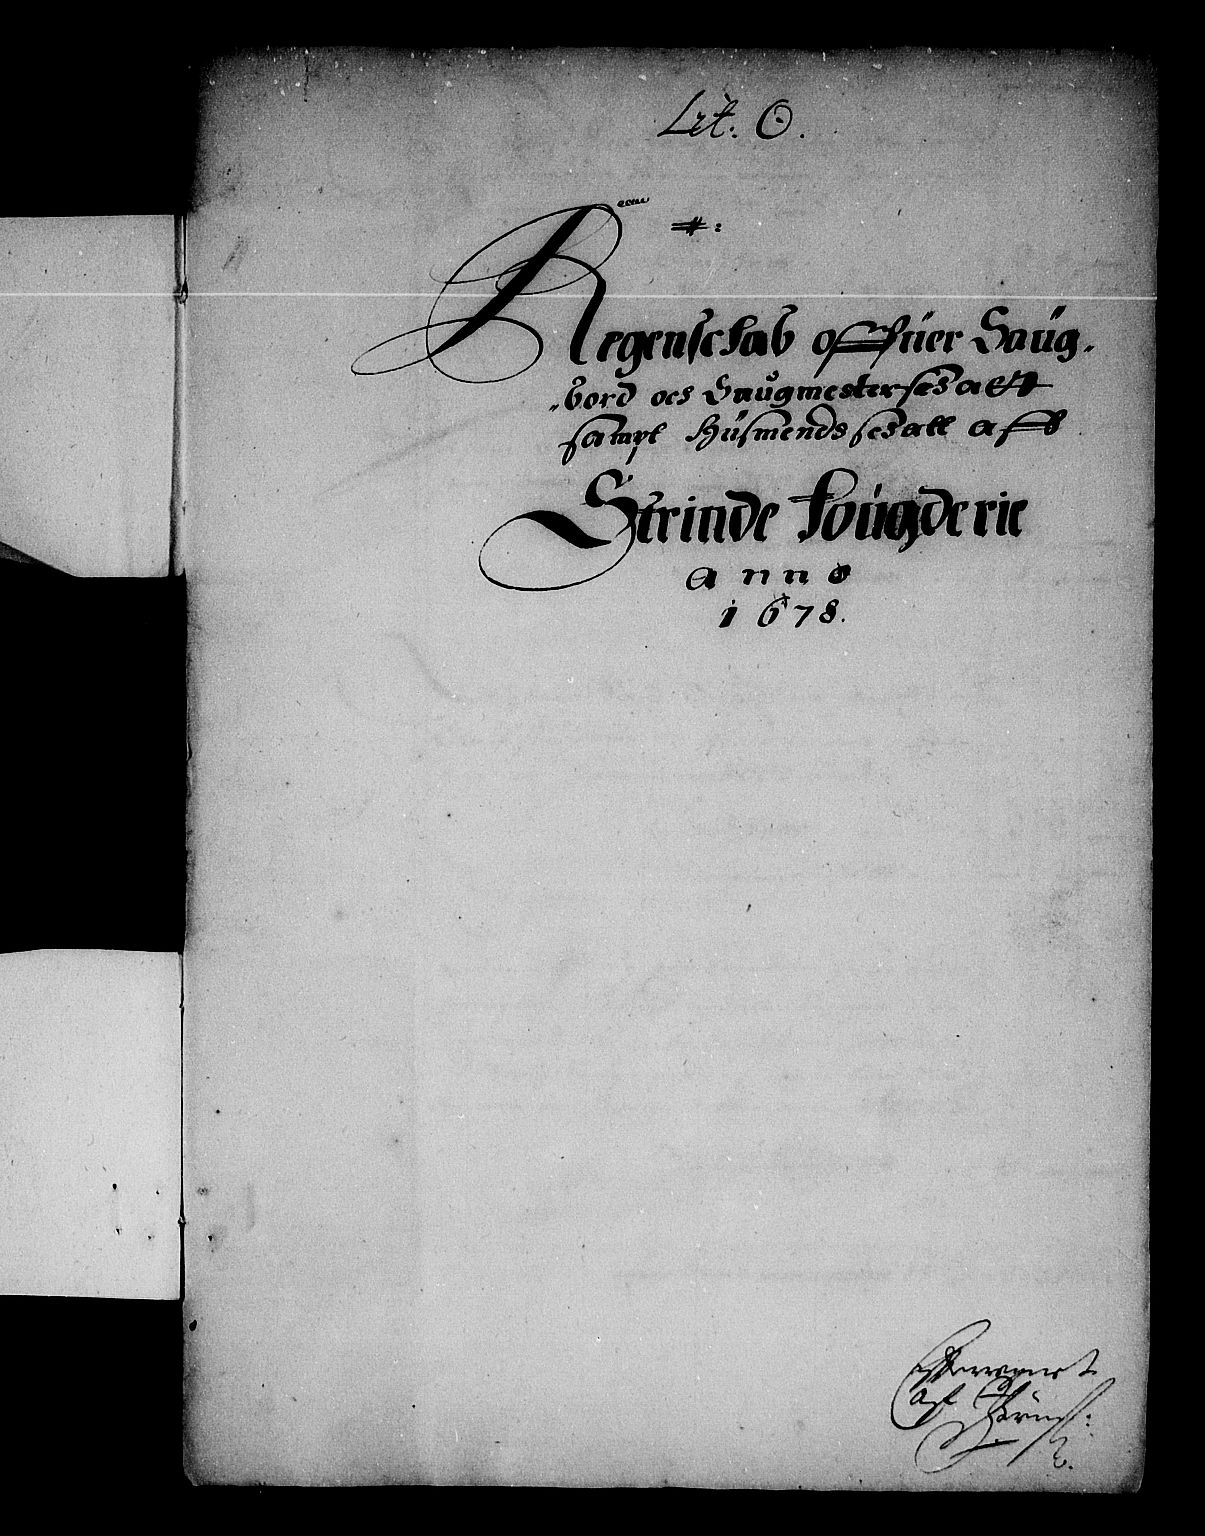 Lit. O.
#:
Regenskab offuer Saug,
,bord och Saugmestersches att
sampt Husmends sches att aff
Strinde Fougderie
Anno
1678.